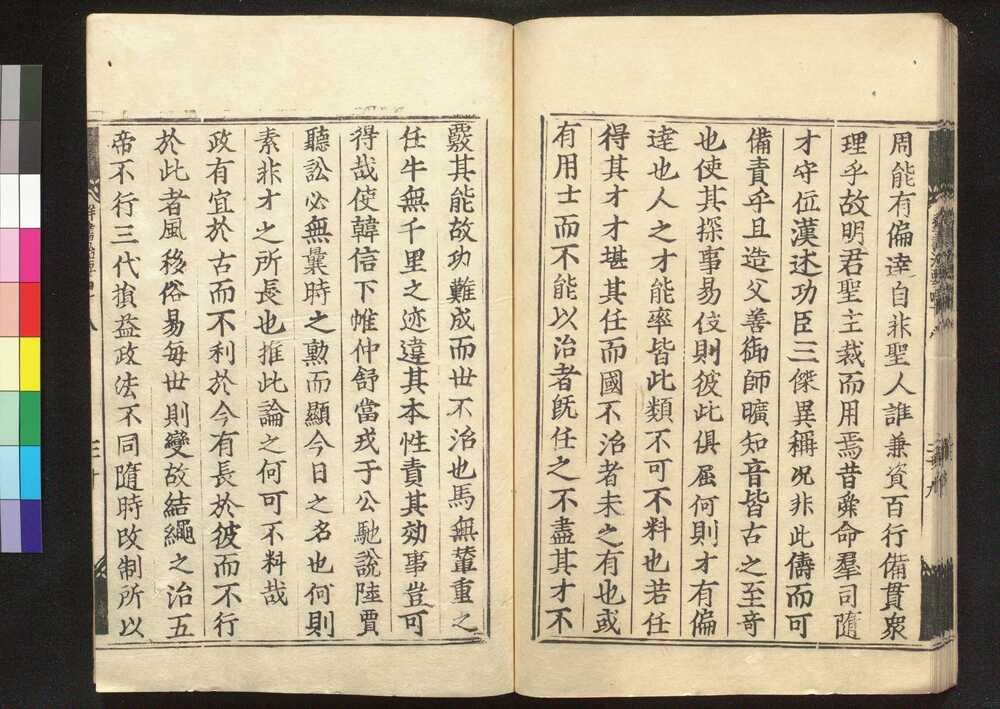 周能有偏達自非聖人誰兼資百行備貫衆
理乎故明君聖主裁而用焉昔舜命羣司隨
才守位漢述功臣三傑異稱况非此儔而可
備責乎且造父善御師曠知音皆古之至奇
也使其探事易伎則彼此俱屈何則才有偏
達也人之才能率皆此類不可不料也若任
得其才才堪其任而國不治者未之有也或
有用士而不能以治者既任之不盡其才不
覈其能故功難成而世不治也馬無輦重之
任牛無千里之迹違其本性責其効事豈可
得哉使韓信下帷仲舒當戎于公馳說陸賈
聽訟必無曩時之勲而顯今日之名也何則
素非才之所長也推此論之何可不料哉
政有宜於古而不利於今有長於彼而不行
於此者風移俗易每世則變故結繩之治五
帝不行三代損益政法不同隨時改制所以